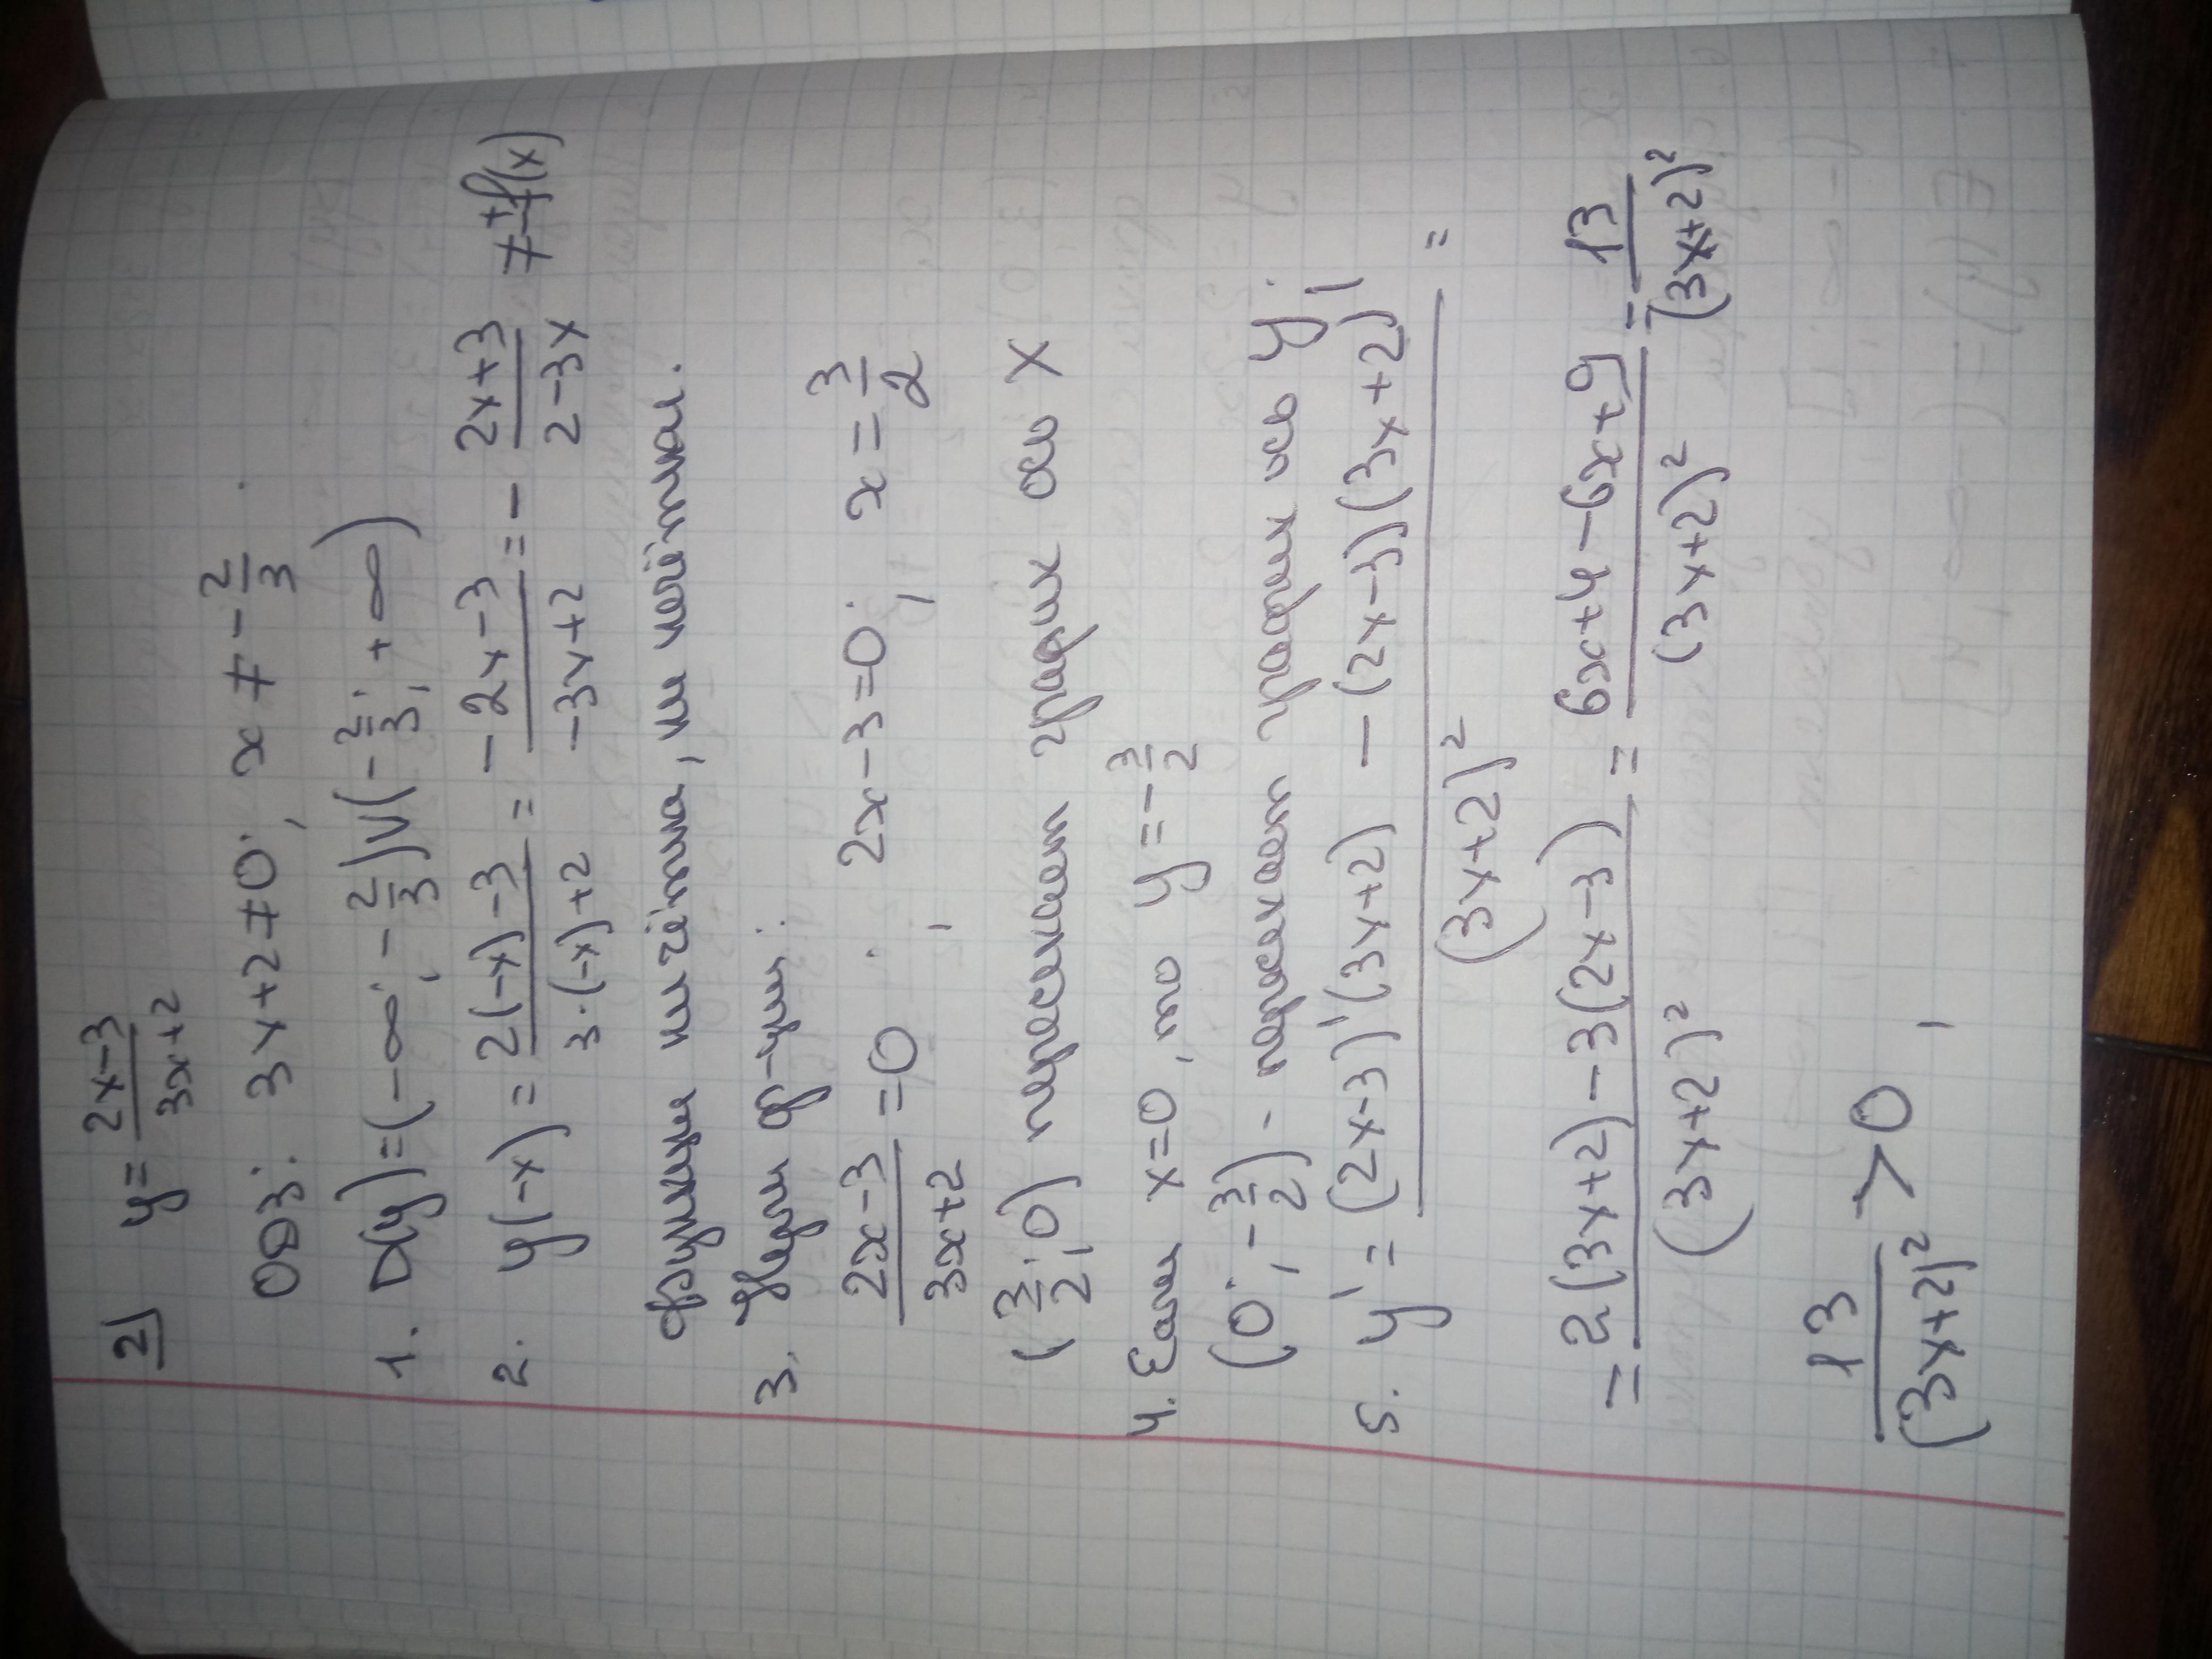 2) y = (2x-3)/(3x+2)
ОДЗ: 3x+2≠0; x ≠ -2/3.
1. D(y)=(-∞; -2/3)∪(-2/3; +∞)
2. y(-x) = (2(-x)-3)/(3·(-x)+2) = (-2x-3)/(-3x+2) = - (2x+3)/(2-3x) ≠ ±f(x)
функция ни чётна, ни нечётная.
3. Нули ф-ции:
(2x-3)/(3x+2) = 0; 2x-3=0; x = 3/2
(3/2; 0) пересекает график ось X
4. Если x=0, то y = -3/2
(0; -3/2) - пересекает график ось y.
5. y' = ((2x-3)'(3x+2) - (2x-3)(3x+2)')/(3x+2)² =
= (2(3x+2)-3(2x-3))/(3x+2)² = (6x+4-6x+9)/(3x+2)² = 13/(3x+2)²
13/(3x+2)² > 0,